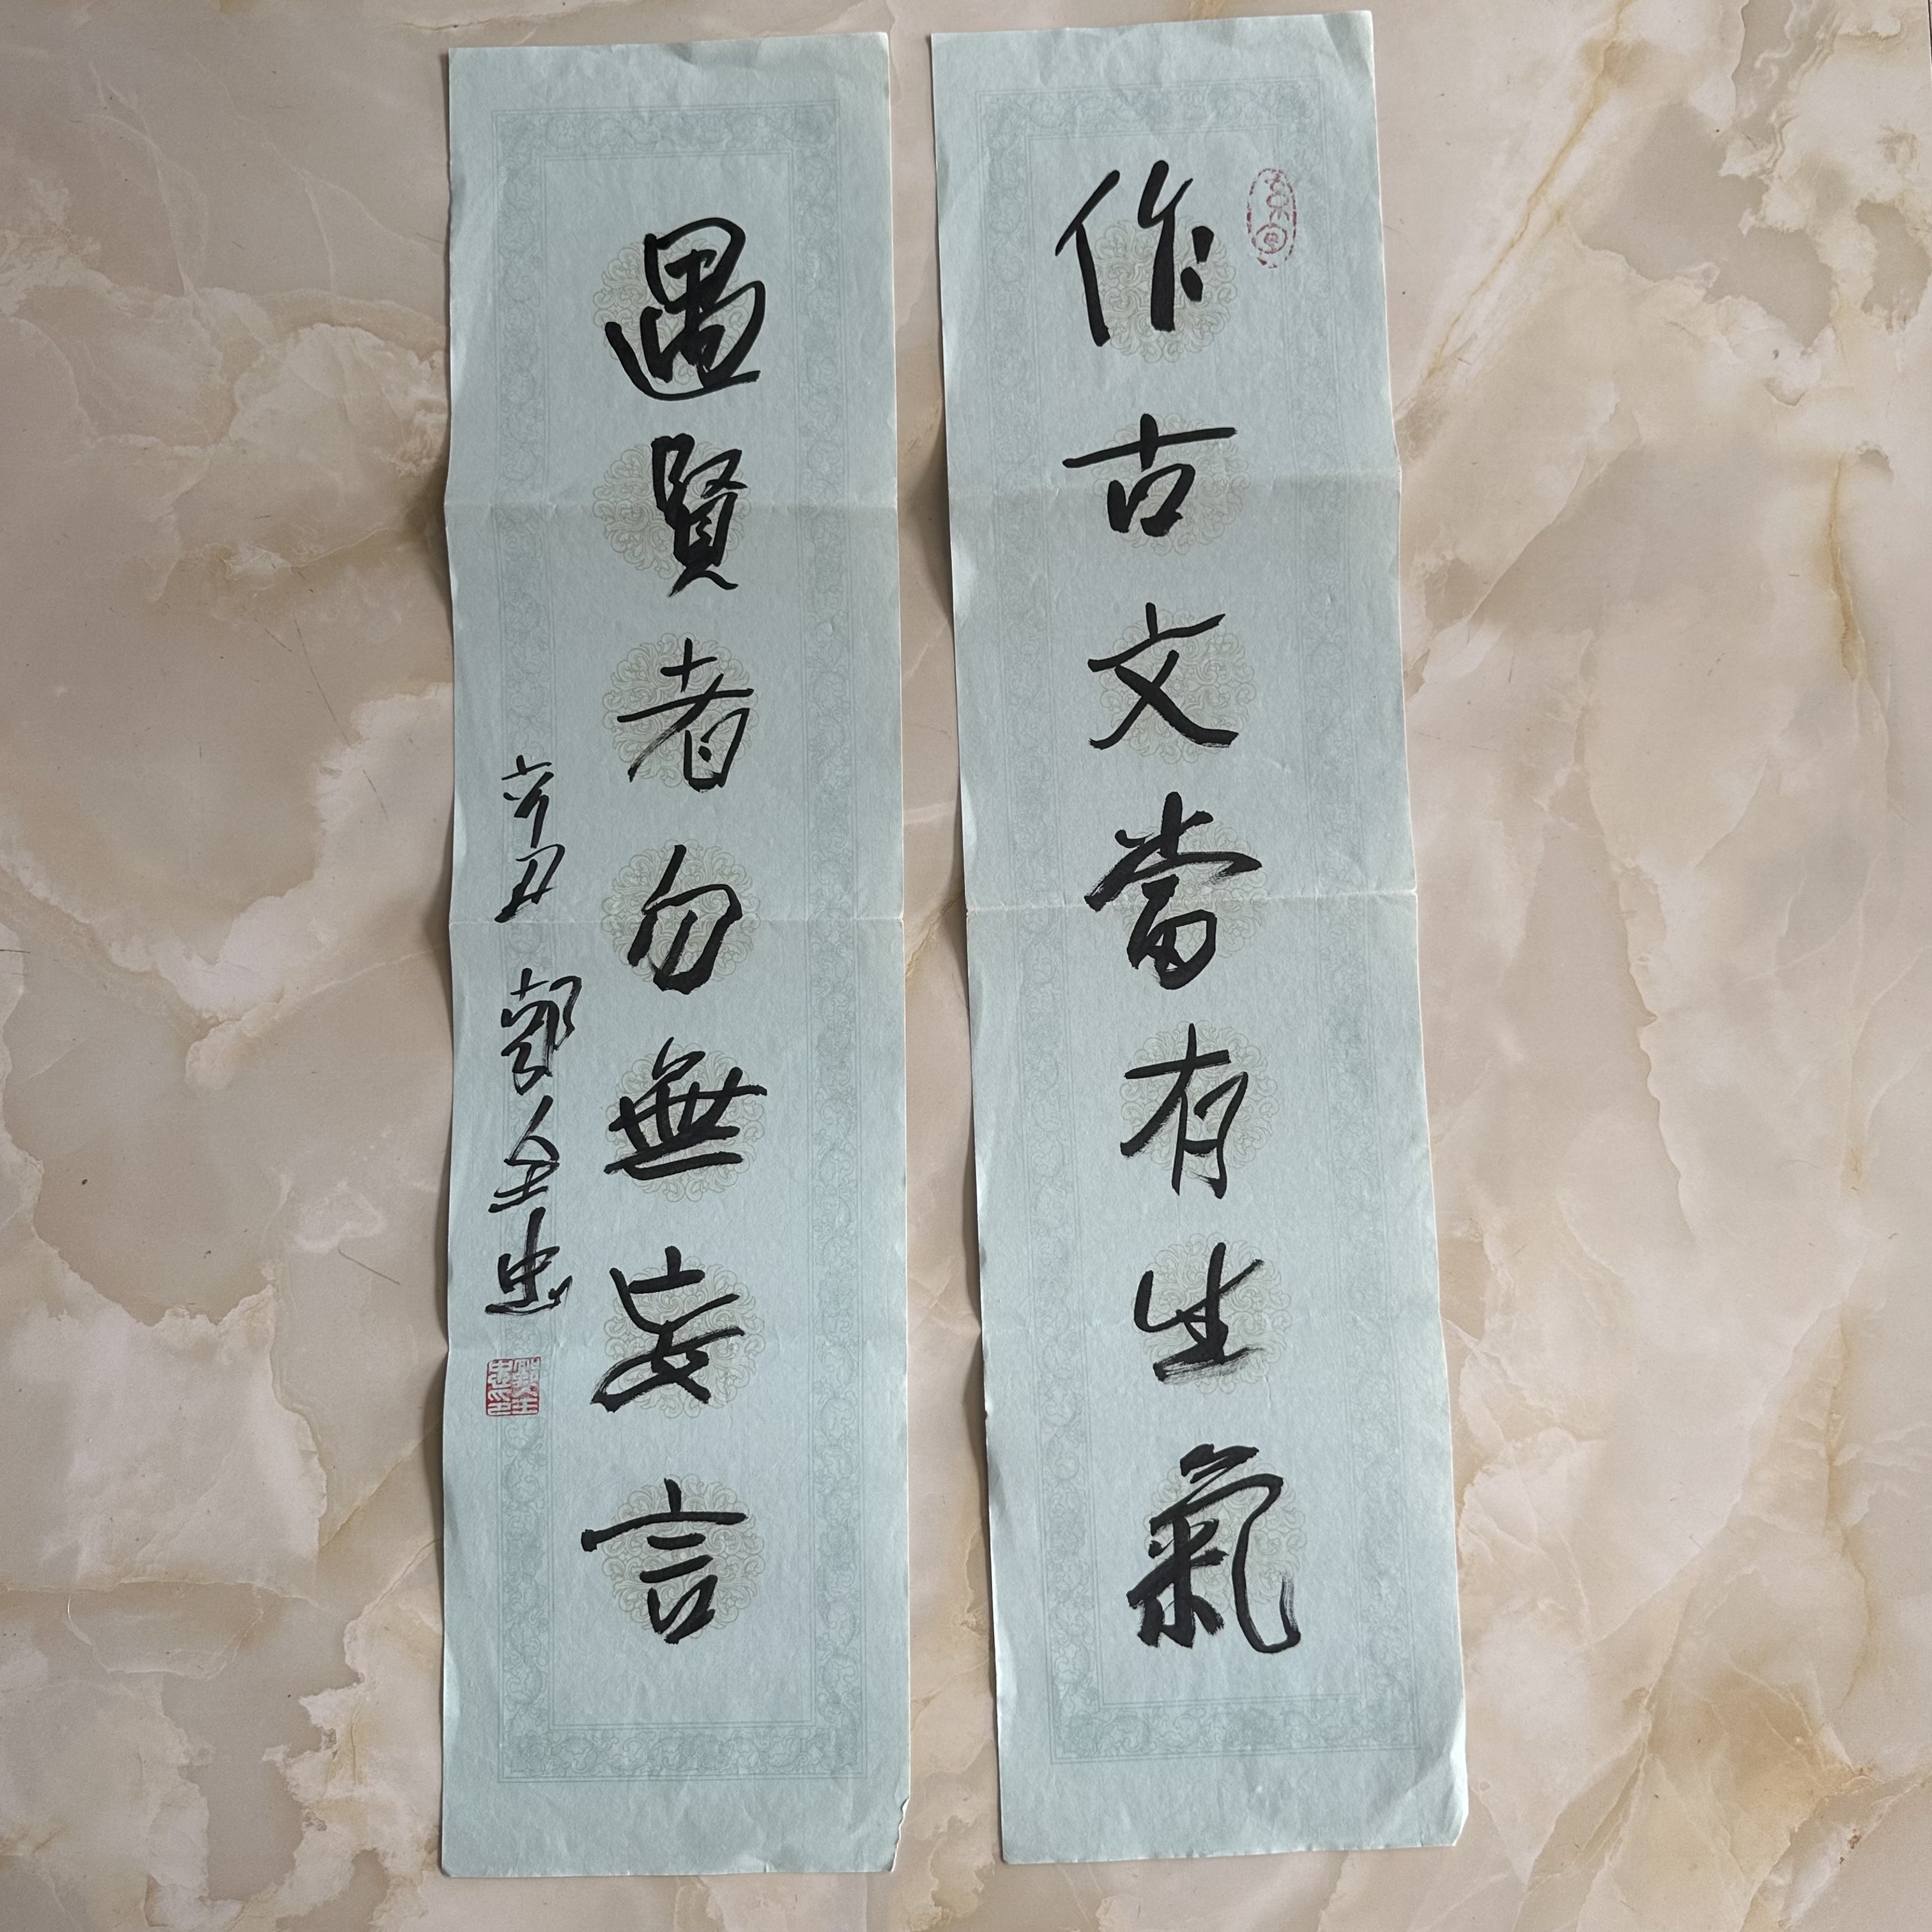 作古文當有生氣
遇賢者勿無妄言
辛丑 郭全忠